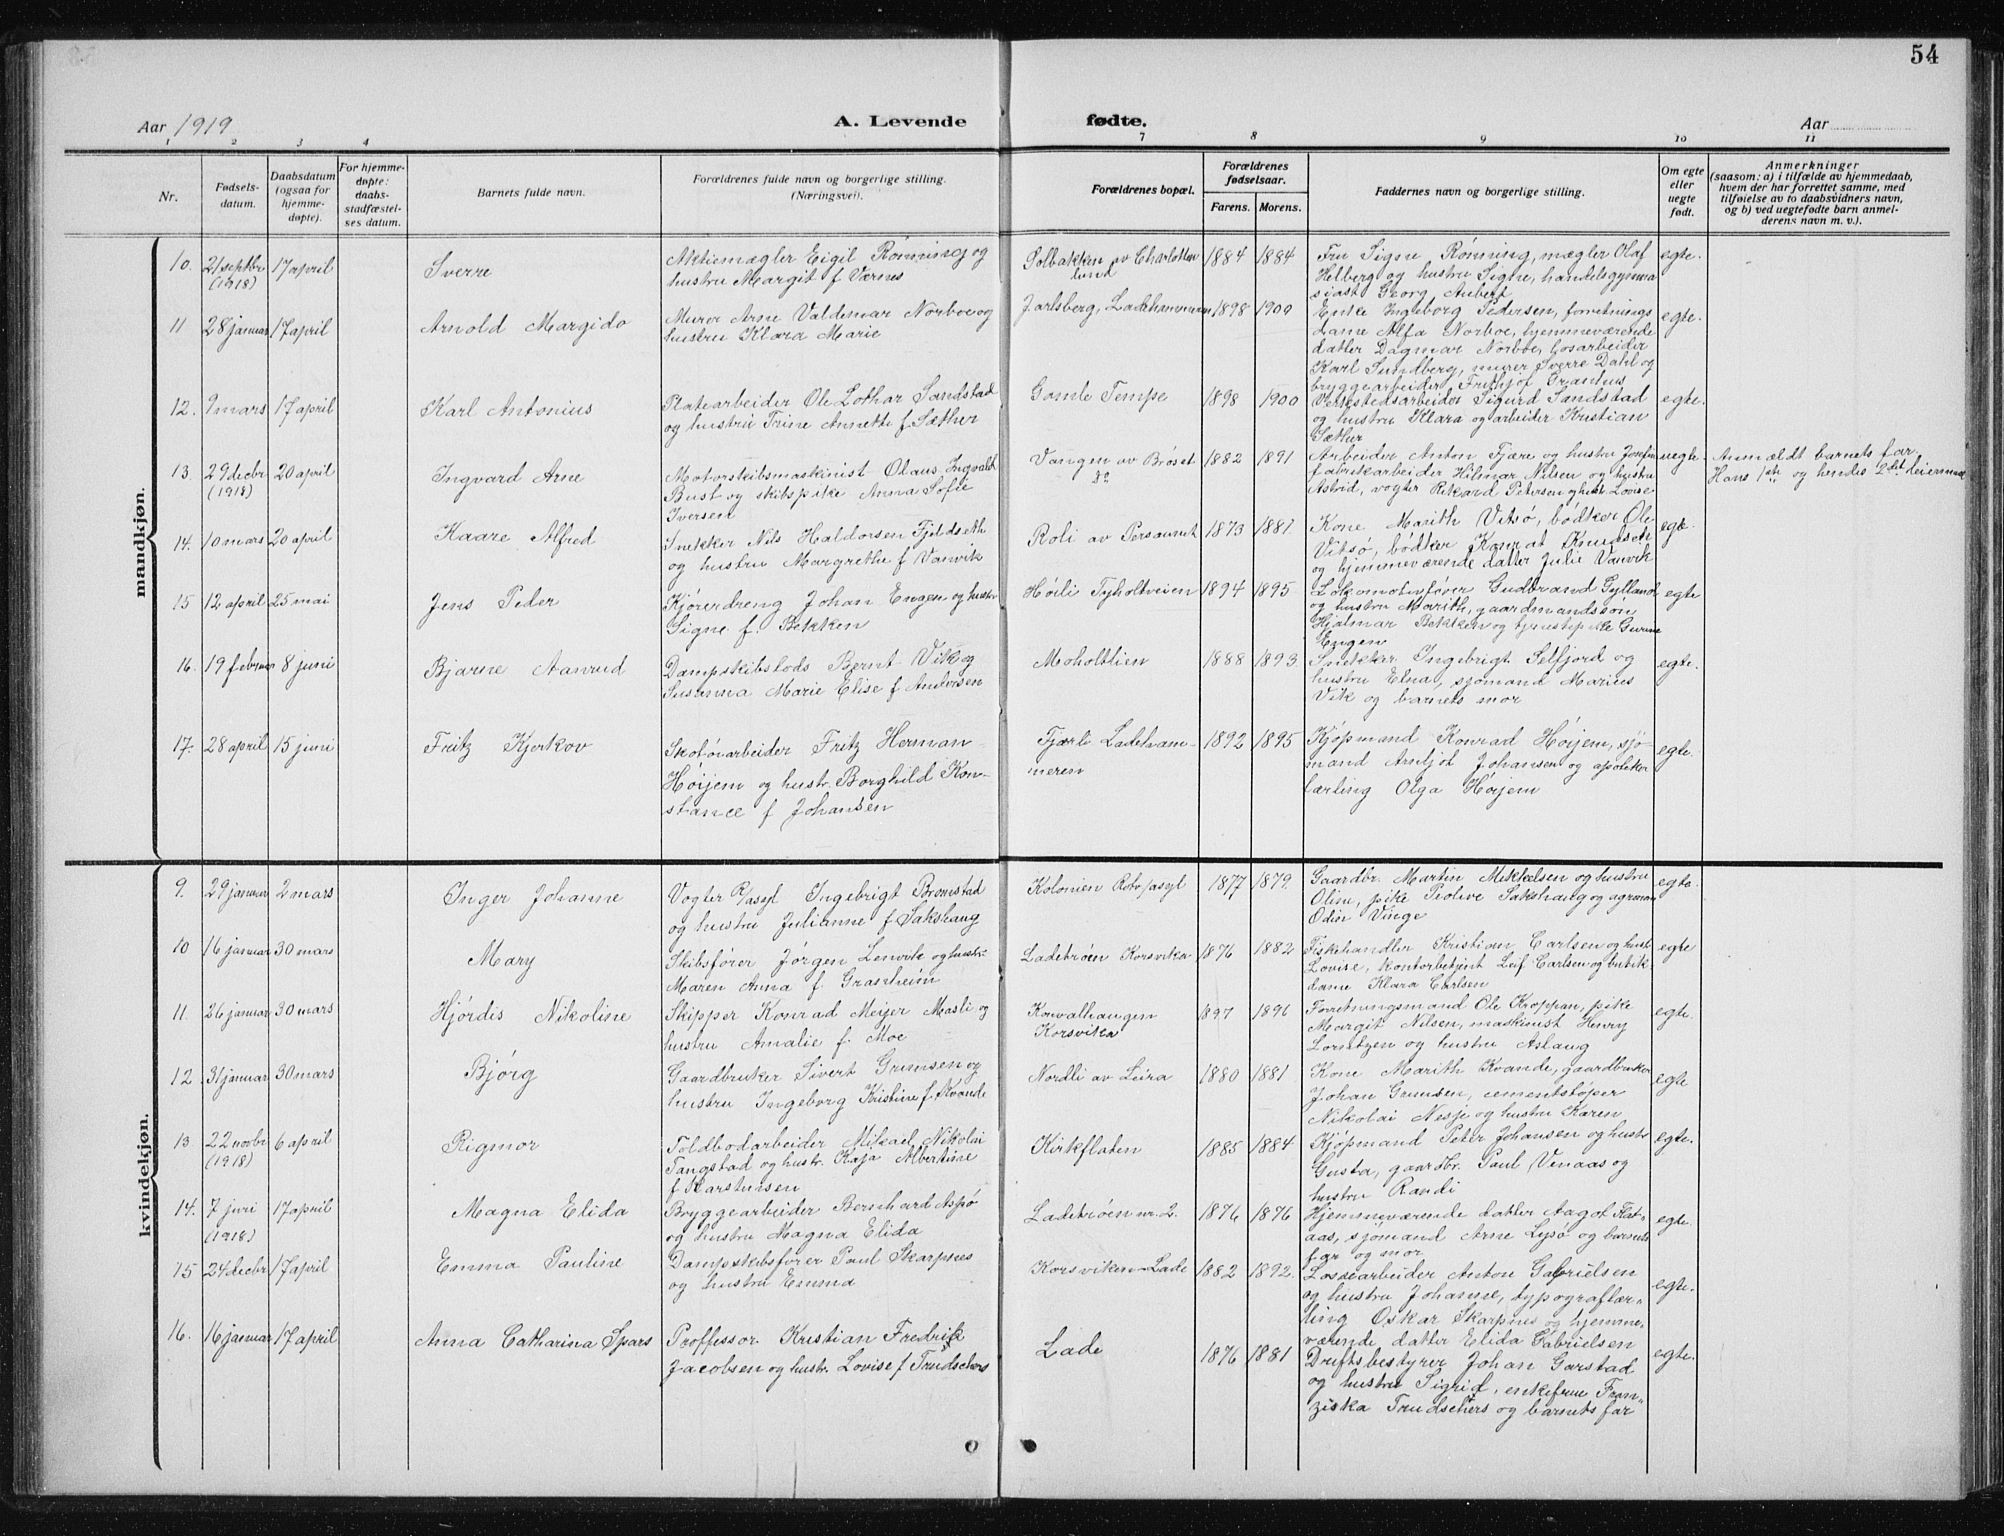 54
Aar 1919
A. Levende
fødte.
Aar
1 2 3 4 7 8 9 10 11
Nr.
Fødsels-
datum.
Daabsdatum
(ogsaa for
hjemme-
døpte).
For hjemme-
døpte:
daabs-
stadfæstel-
ses datum.
Barnets fulde navn.
Forældrenes fulde navn og borgerlige stilling.
(Næringsvei).
Forældrenes bopæl.
Forældrenes
fødselsaar.
Farens. Morens.
Faddernes navn og borgerlige stilling.
Om egte
eller
uegte
født.
Anmerkninger
(saasom: a) i tilfælde av hjemmedaab,
hvem der har forrettet samme, med
tilføielse av to daabsvidners navn,
og b) ved uegtefødte barn anmel-
derens navn m. v.).
mandkjøn.
10. 21 septbr (1918) 17 april
Sverre
Aktiemægler Eigil Rønning og
hustru Margit f. Værnes
Solbakken av Charlotten
lund
1884 1884
Fru Signe Rønning, mægler Olaf
Helberg og hustru Signe, handelsgymna
siast Georg Aubert
egte.
11 28 januar 17 april
Arnold Margido
Murer Arne Valdemar Norboe og
hustru Klara Marie
Jarlsberg, Ladehammeren
1898 1900
Enke Ingeborg Pedersen, forretnings
dame Alfa Norboe, hjemmeværende
datter Dagmar Norboe, losarbeider
Karl Sundberg, murer Sverre Dahl og
bryggearbeider Frithjof Granhus
egte.
12. 9 mars 17 april
Karl Antonius
Platearbeider Ole Lothar Sandstad
og hustru Trine Annette f. Sæther
Gamle Tempe
1898 1900
Verkstedsarbeider Sigurd Sandstad
og hustru Klara og arbeider Kristian
Sæther
egte.
13. 29 decbr (1918) 20 april
Ingvard Arne
Motorskibsmaskinist Olaus Ingvald
Bust og skibspike Anna Sofie
Iversen
Vangen av Brøset
1882 1891
Arbeider Anton Fjære og hustru Josefin
fabrikarbeider Hilmar Nilsen og hustru
Astrid, vogter Rikard Petersen og hust. Lovise
uegte
Anmældt barnets far.
Hans 1ste og hendes 2det leiermaal
14. 10 mars 20 april
Kaare Alfred
Snekker Nils Haldorsen Fjeldseth
og hustru Margrethe f Vanvik
Roli av Persaunet
1873 1881
Kone Marith Vitsø, bødtker Ole
Vitsø, bødtker Konrat Knudsen
og hjemmeværende datter Julie Vanvik
egte
15 12 april 25 mai
Jens Peder
Kjøreredreng Johan Engen og hustr
Signe f. Bekken
Høili Tyholtveien
1894 1895
Lokomotivfører Gudbrand Gylland
og hustru Marith, gaardmandssøn
Hjalmar Bekken og tjenestepike Gurine
Engen
egte
16. 19 februar 8 juni
Bjarne Aanrud
Dampskibslods Bernt Vik og
Susanna Marie Elise f Andersen
Moholtlien
1888 1893.
Snekker Ingebrigt Selfjord og
hustru Elna, sjømand Marius
Vik og barnets mor
egte.
17. 28 april 15 juni
Fritz Kjerkov
Skotøiarbeider Fritz Herman
Høijem og hustr. Borghild Kon-
stance f Johansen
Fjærli Ladeham-
meren
1892 1895
Kjøpmand Konrad Høijem, sjø-
mand Arnljot Johansen og apoteker
lærling Olga Høijem
egte.
kvindekjøn.
9. 29 januar 2 mars
Inger Johanne
Vogter R/asyl Ingebrigt Bromstad
og hustru Julianne f Sakshaug
Kolonien Rotv/asyl
1877 1879.
Gaardbr. Martin Mikkelsen og hustru
Oline, pike Peolive Sakshaug og agronom
Odin Vinge
egte.
10 16 januar 30 mars
Mary
Skibsfører Jørgen Lenvik og hustr.
Maren Anna f. Granheim
Ladebroen Korsvika
1876 1882
Fiskehandler Kristian Carlsen og hust
Lovise, kontorbetjent Leif Carlsen og butik-
dame Klara Carlsen
egte
11. 26 januar 30 mars
Hjørdis Nikoline
Skipper Konrad Meijer Masli og
hustru Amalie f. Moe
Konvalhaugen
Korsvika
1897 1896
Forretningsmand Ole Kroppan, pike
Margit Nilsen, maskinist Henry
Lorntzen og hustru Aslaug
egte.
12 31 januar 30 mars
Bjørg
Gaardbruker Sivert Grunsen og
hustru Ingeborg Kristine f. Kvande
Nordli av Leira
1880 1881
Kone Marith Kvande, gaardbruker
Johan Grunsen, cementstøper
Nikolai Nesje og hustru Karen
egte
13 22 novbr (1918) 6 april
Rigmor
Toldbodarbeider Mikael Nikolai
Tangstad og hustr. Kaja Albertine
f Karstensen
Kirkflaten
1885 1884
Kjøpmand Peter Johansen og hustr
Gusta, gaardbr. Paul Venaas og
hustru Randi
egte.
14. 7 juni (1918) 17 april
Magna Elida
Bryggearbeider Bernhard Aspø
og hustru Magna Elida
Ladebroen nr. 2.
1876 1876
Hjemmeværende datter Aagot Flat-
aas, sjømand Arne Lysø og barnets
far og mor
egte.
15 24 decbr 17 april
Emma Pauline
Dampskibsfører Paul Skarpnes
og hustru Emma
Korsviken-Lade
1882 1892.
Lossearbeider Anton Gabrielsen
og hustru Johanne, typograflær-
ling Oskar Skarpnes og hjemme-
værende datter Elida Gabrielsen
egte.
16. 16 januar 17 april
Anna Catharina Spars
Proffessor Kristian Fredrik
Jacobsen og hustr. Lovise f Trudschers
Lade
1876 1881
Driftsbestyrer Johan Garstad
og hustru Sigrid, enkefrue Fran-
ziska Trudschers og barnets far
egte.